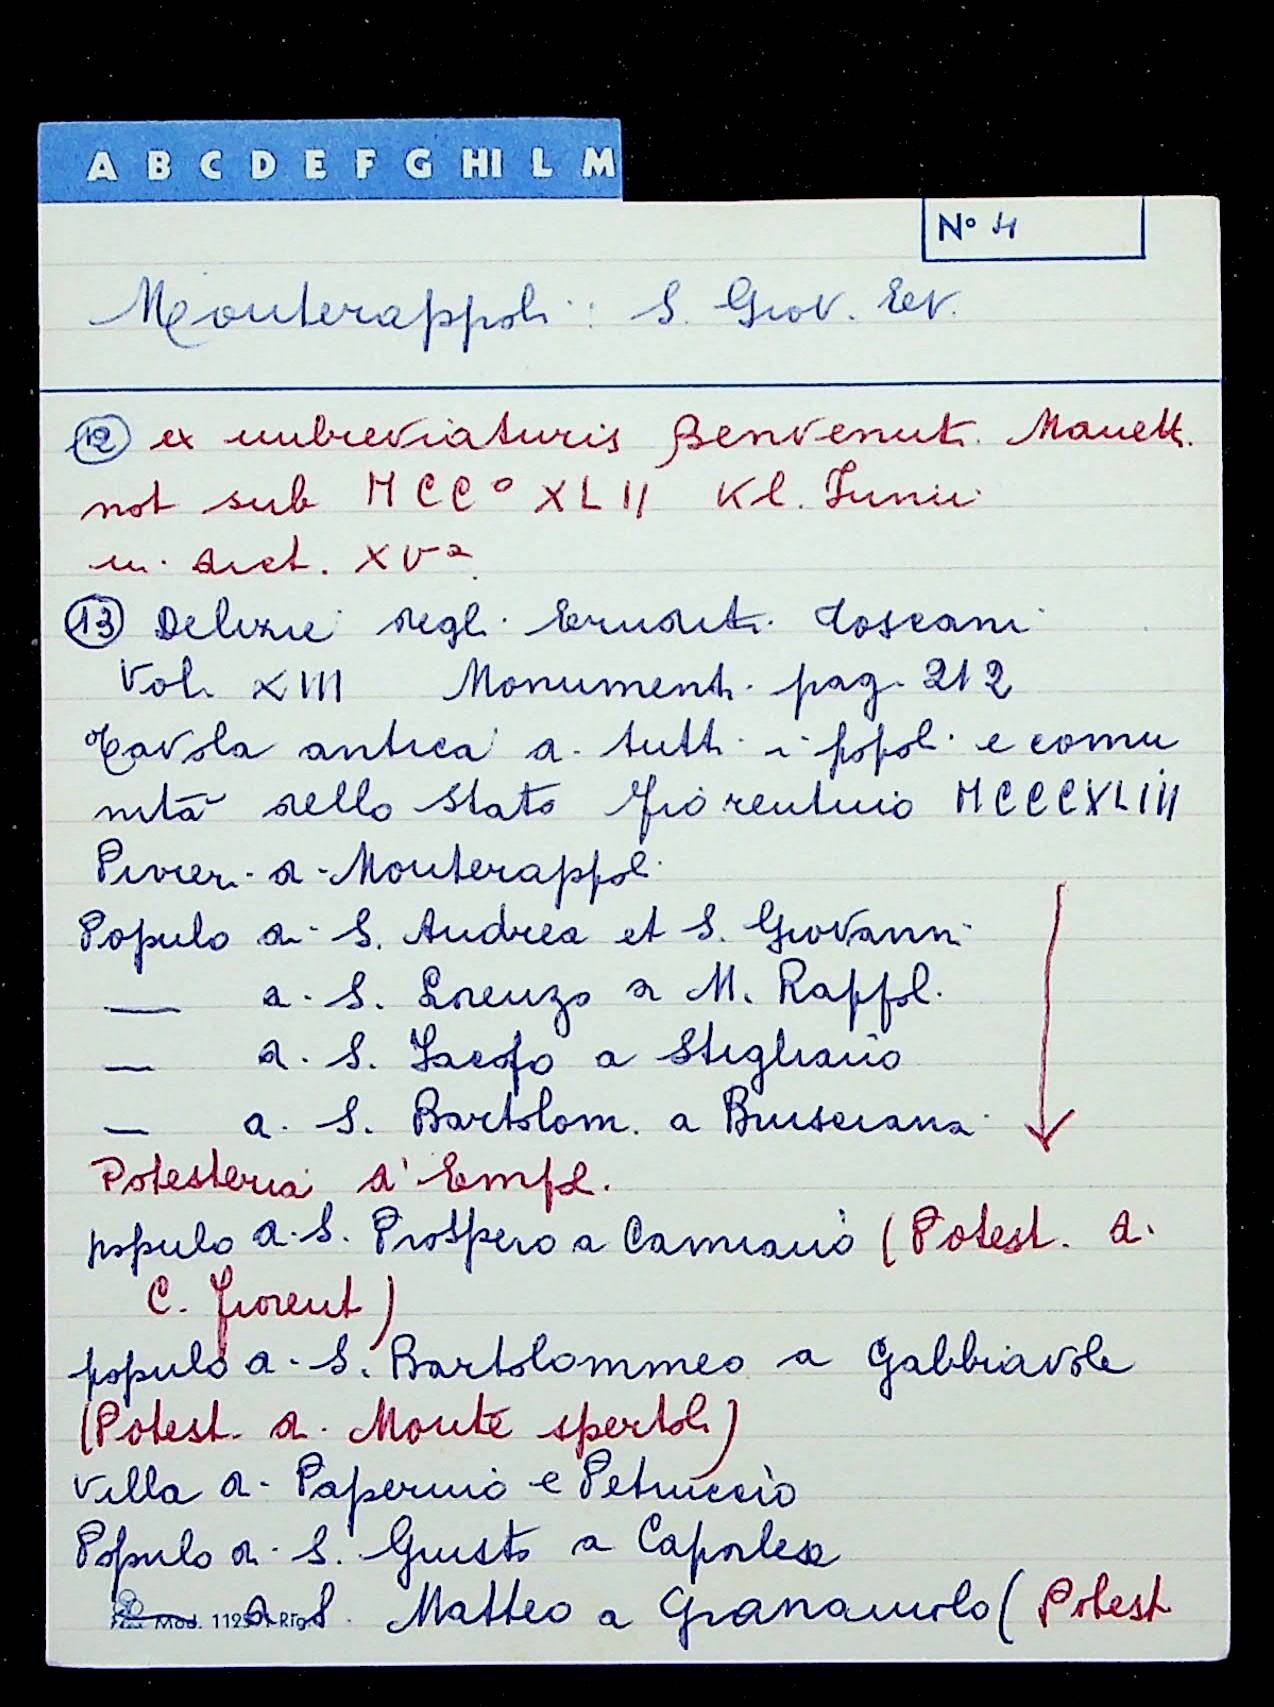 A B C D E F G HI L M
N° 4
Monterappoli: S. Giov. Ev.
12 ex imbreviaturis Benvenuti Manetti
not sub MCC° XLII Kl. Junii
in dict. XVa
13 Delizie degli Eruditi Toscani
Vol. XIII Monumenti pag. 212
Tavola antica di tutti i popoli e comu
nità dello Stato Fiorentino MCCCXLIII
Pivieri di Monterappoli
Popolo di S. Andrea et S. Giovanni
— di S. Lorenzo a M. Rappoli
— di S. Jacopo a Stigliano
— di S. Bartolom. a Brusciana
Potesteria d'Empoli.
popolo di S. Prospero a Cammiano (Potest. di
C. fiorent)
popolo di S. Bartolommeo a Gabbiavole
(Potest. di Monte spertoli)
villa di Papernio e Petruccio
Popolo di S. Giusto a Caporlese
— di S. Matteo a Granaiuolo (Potest
Mod. 1125 Rig.